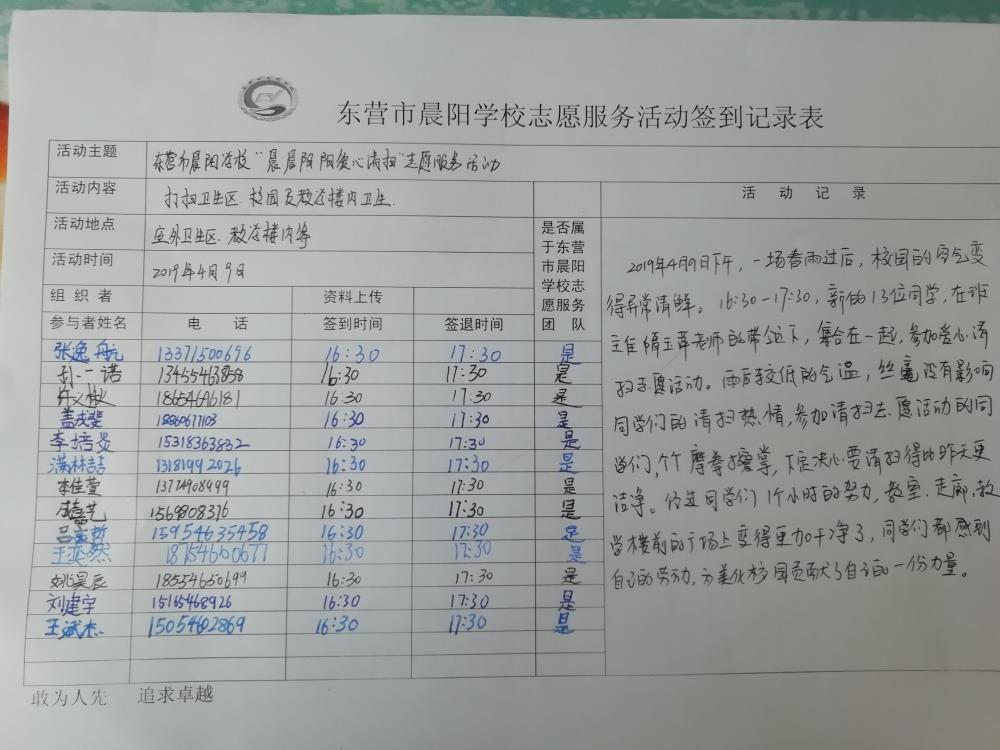 东营市晨阳学校志愿服务活动签到记录表
活动主题 东营市晨阳学校“晨晨阳阳爱心清扫”志愿服务活动
活动内容 打扫卫生区、校园及教学楼内卫生.
活动地点 室外卫生区、教学楼内等
活动时间 2019年4月9日
组织者 资料上传
参与者姓名 电话 签到时间 签退时间
是否属
于东营
市晨阳
学校志
愿服务
团队
张逸航 13371500696 16:30 17:30 是
孙一诺 13455463858 16:30 17:30 是
18654646181 16:30 17:30 是
盖成斐 18860677103 16:30 17:30 是
李培旻 15318363832 16:30 17:30 是
满林喆 13181992026 16:30 17:30 是
李佳萱 13774908499 16:30 17:30 是
1569808376 16:30 17:30 是
吕 哲 15954635458 16:30 17:30 是
王奕然 18754600677 16:30 17:30 是
姚昊辰 18554650699 16:30 17:30 是
刘建宇 15165468926 16:30 17:30 是
王斌杰 15054602869 16:30 17:30 是
活动记录
2019年4月9日下午，一场春雨过后，校园的空气变
得异常清鲜。16:30-17:30，新的13位同学，在班
主任 老师的带领下，集合在一起，参加爱心清
扫志愿活动。雨后较低的气温，丝毫没有影响
同学们的清扫热情，参加清扫志愿活动的同
学们，个个摩拳擦掌，下定决心要清扫得比昨天更
洁净。经过同学们1个小时的努力，教室、走廊、教
学楼前的广场上变得更加干净了，同学们都感到
自己的劳动，为美化校园贡献了自己的一份力量。
敢为人先 追求卓越